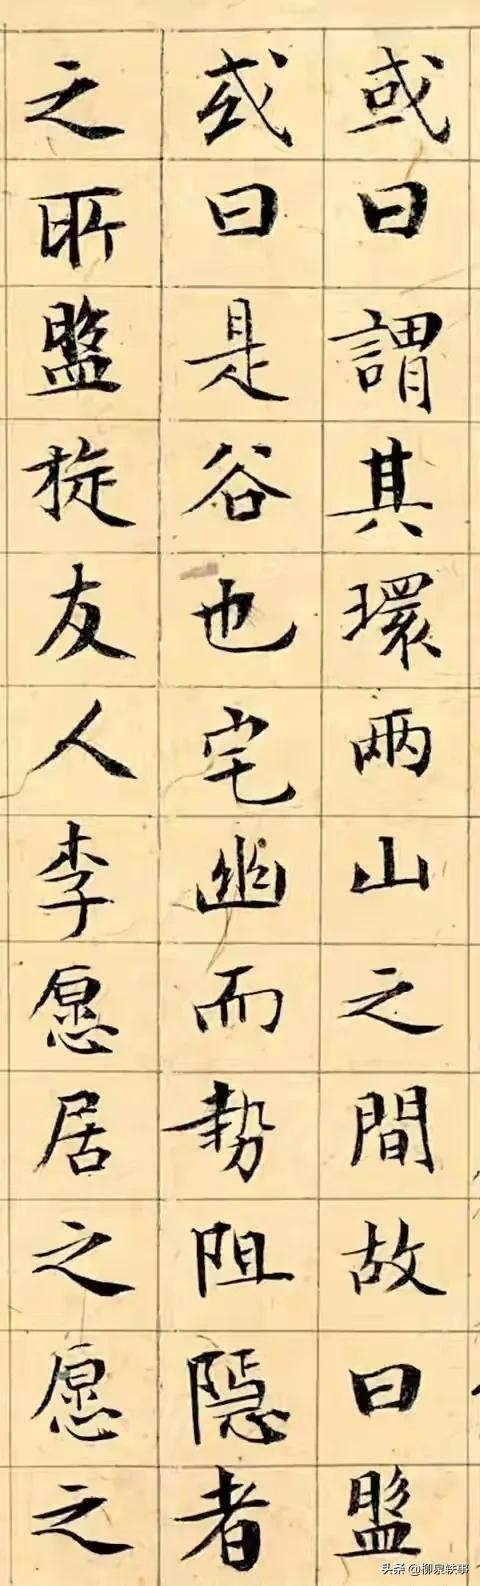 或曰謂其環兩山之間故曰盤
或曰是谷也宅幽而勢阻隱者
之所盤旋友人李愿居之愿之
头条 @柳泉轶事